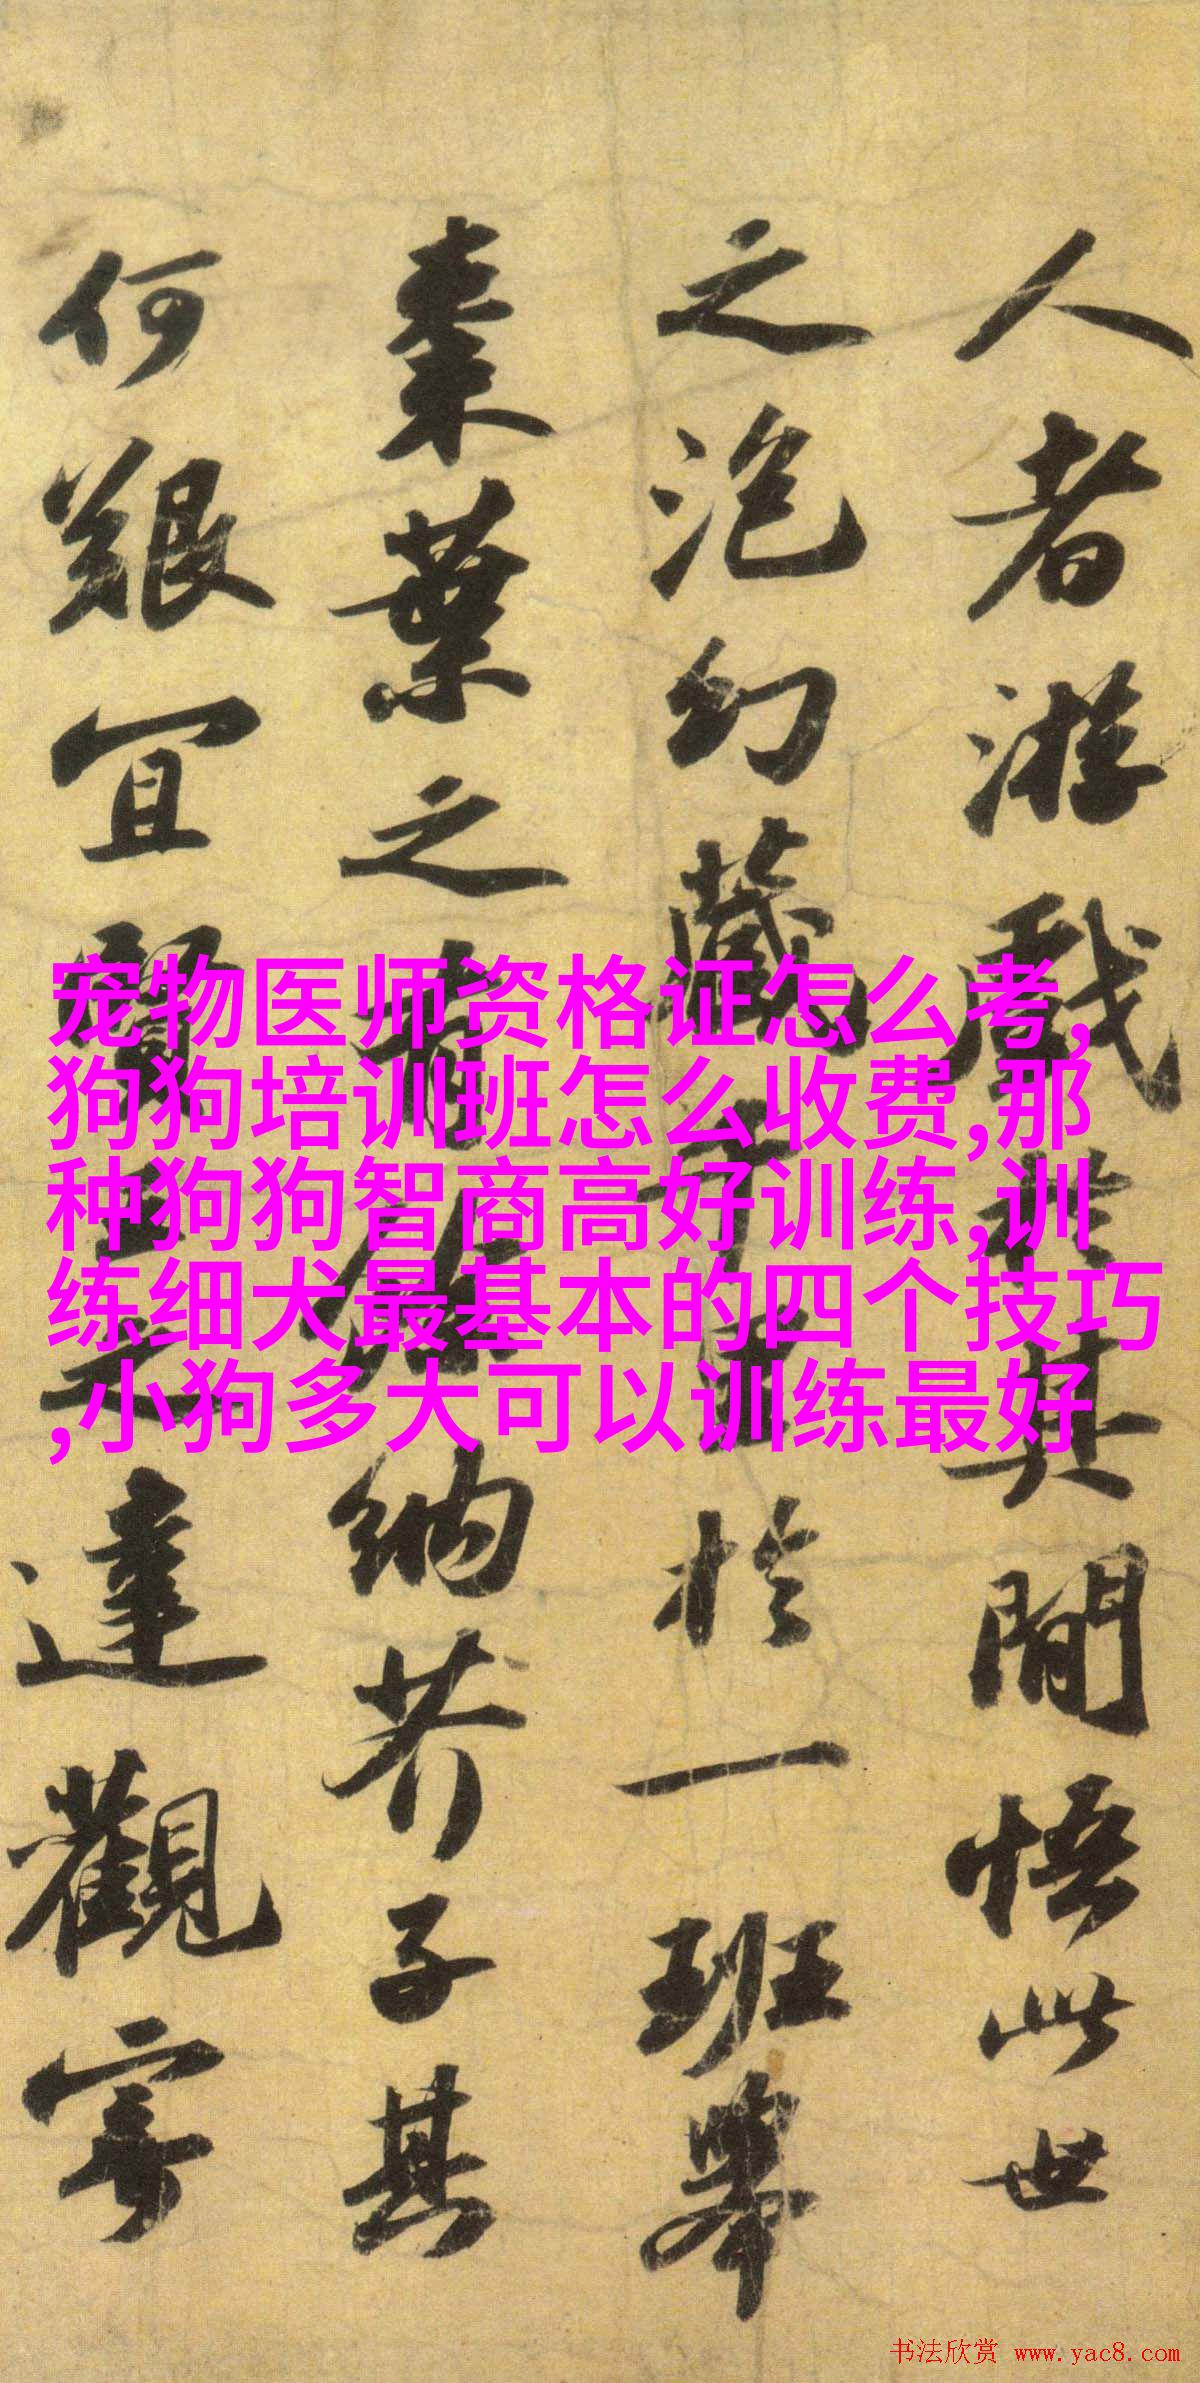 人者游戲於其間悟此世
之泡幻藏千里於一班舉
棗葉之有餘納芥子其
何艱宜賢王之達觀寄
宠物医师资格证怎么考,
狗狗培训班怎么收费,那
种狗狗智商高好训练,训
练细犬最基本的四个技巧
,小狗多大可以训练最好
书法欣赏 www.yac8.com